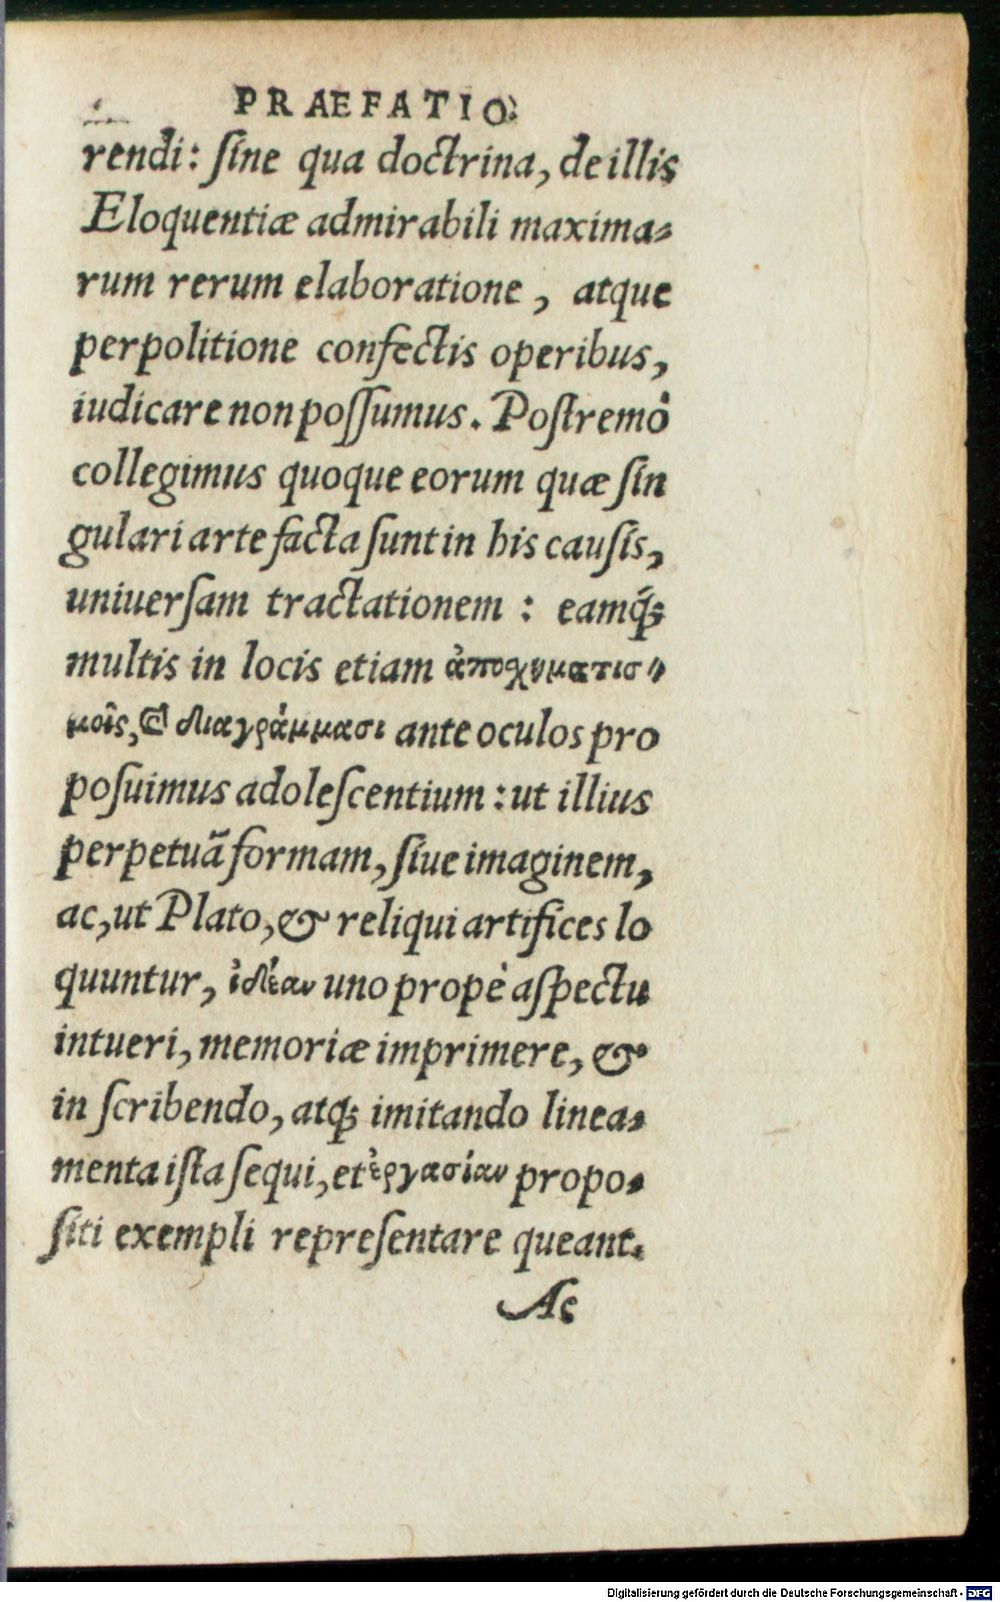 PRAEFATIO.
rendi: sine qua doctrina, de illis
Eloquentiæ admirabili maxima-
rum rerum elaboratione, atque
perpolitione confectis operibus,
iudicare non possumus. Postremò
collegimus quoque eorum quæ sin
gulari arte facta sunt in his causis,
uniuersam tractationem : eamq́;
multis in locis etiam ἀποχυματισ-
μοῖς, & διαγράμμασι ante oculos pro
posuimus adolescentium : ut illius
perpetuã formam, siue imaginem,
ac, ut Plato, & reliqui artifices lo
quuntur, ἰδέαν uno propè aspectu
intueri, memoriæ imprimere, &
in scribendo, atq; imitando linea-
menta ista sequi, et ἐργασίαν propo-
siti exempli representare queant.
Ac
Digitalisierung gefördert durch die Deutsche Forschungsgemeinschaft - DFG